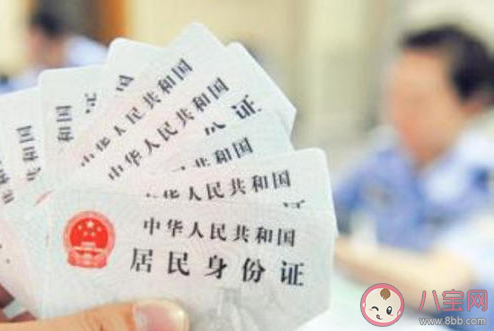 和国
中华人民共和国
中华人民共和国
份证
中华人民共和国
证
中华人民共和国
居民身份证
八宝网
www.8bb.com